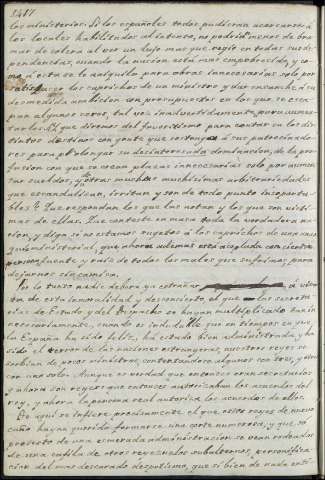 1417
los ministerios. Si los españoles todos pudieran acercarse á
los locales habilitados al intento, no podrian menos de bra-
mar de colera al ver un lujo mas que regio en todas sus de-
pendencias, cuando la nacion está mas empobrecida, y co-
mo á esta se le aniquila para obras innecesarias solo por
satisfacer los caprichos de un ministro y dar ensanche á su
desmedida ambicion con presupuestos en los que se esca-
pan algunos ceros, tal vez inadvertidamente, para aumen-
tarlos. ¿Y que diremos del favoritismo para contar en los dis-
tintos destinos con gente que á sus patrocinado-
res para prolongar su desinteresada dominacion, de la pro-
fusion con que se crean plazas innecesarias solo por aumen-
tar sueldos, y otras muchas muchisimas arbitrariedades
que escandalizan, irritan y son de todo punto insoporta-
bles? Que respondan los que las notan y los que son victi-
mas de ellas. Que conteste en masa toda la verdadera na-
cion, y diga si no estamos sugetos á los caprichos de una
ministerial, que ahora ademas está acoplada con cierto
personage fuente y raiz de todos los males que sufrimos para
dejarnos sin camisa.
Por lo tanto nadie debera ya estrañar á vis-
ta de esta inmoralidad y desconcierto, el que las secreta-
rias de Estado y del Despacho se hayan multiplicado tan in
necesariamente, cuando es indudable que en tiempos en que
la España ha sido feliz, ha estado bien administrada, y ha
sido el terror de las naciones extrangeras, nuestros reyes se
servian de pocos ministros, contentandose algunos con tres, y otros
con uno solo. Aunque es verdad que entonces eran secretarios
y ahora son reyes: que entonces autorizaban los acuerdos del
rey, y ahora la persona real autoriza los acuerdos de ellos.
De aqui se infiere precisamente el que estos reyes de nuevo
cuño hayan querido formarse una corte numerosa, y que so
pretesto de una esmerada administracion se vean rodeados
de una cafila de otros reyezuelos subalternos, personifica-
cion del mas descarado despotismo, que si bien de nada enti-